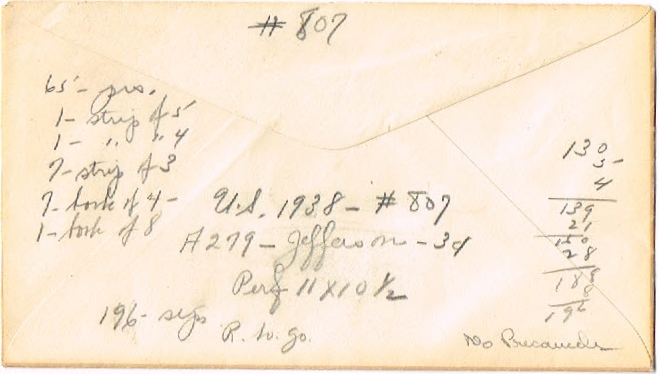 # 807
65 - prs.
1 - strip of 5
1 - " " 4
7 - strip of 3
7 - of 4 -
1 - of 8
U.S. 1938 - # 807
A279 - Jefferson - 3¢
Perf 11 X 10 1/2
196 -
R. to go.
130
5
4
139
21
160
28
188
8
196
No Precancels